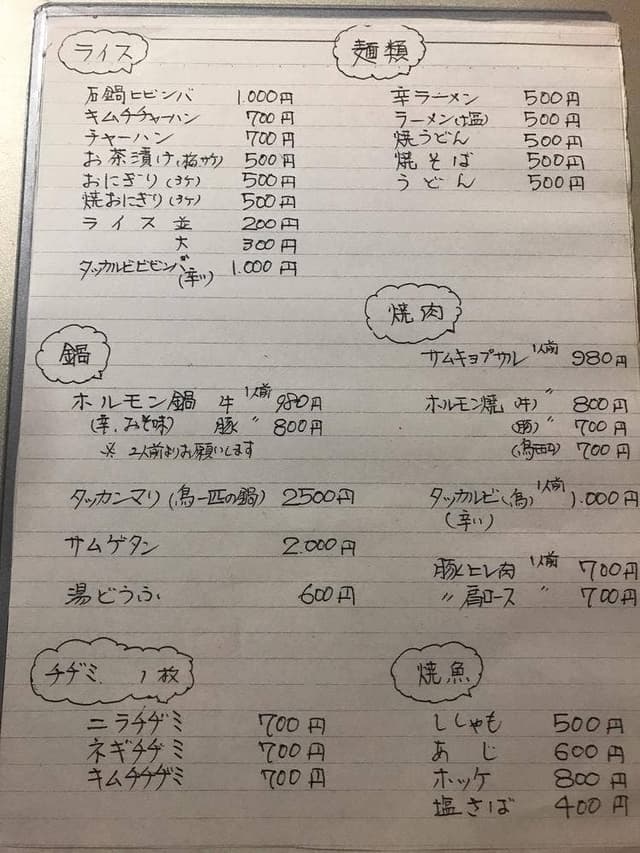 ライス
石鍋ビビンバ 1.000円
キムチチャーハン 700円
チャーハン 700円
お茶漬け(梅,サケ) 500円
おにぎり(3ケ) 500円
焼おにぎり(3ケ) 500円
ライス 並 200円
大 300円
タッカルビビビンバ(辛い) 1.000円
麺類
辛ラーメン 500円
ラーメン(塩) 500円
焼うどん 500円
焼そば 500円
うどん 500円
鍋
ホルモン鍋 牛 1人前 980円
(辛,みそ味) 豚 〃 800円
※ 2人前よりお願いします
タッカンマリ(鳥一匹の鍋) 2500円
サムゲタン 2.000円
湯どうふ 600円
焼肉
サムギョプサル 1人前 980円
ホルモン焼 (牛) 〃 800円
(豚) 700円
700円
タッカルビ(鳥) 1人前 1.000円
(辛い)
豚ヒレ肉 1人前 700円
〃 肩ロース 〃 700円
チヂミ 1枚
ニラチヂミ 700円
ネギチヂミ 700円
キムチチヂミ 700円
焼魚
ししゃも 500円
あじ 600円
ホッケ 800円
塩さば 400円